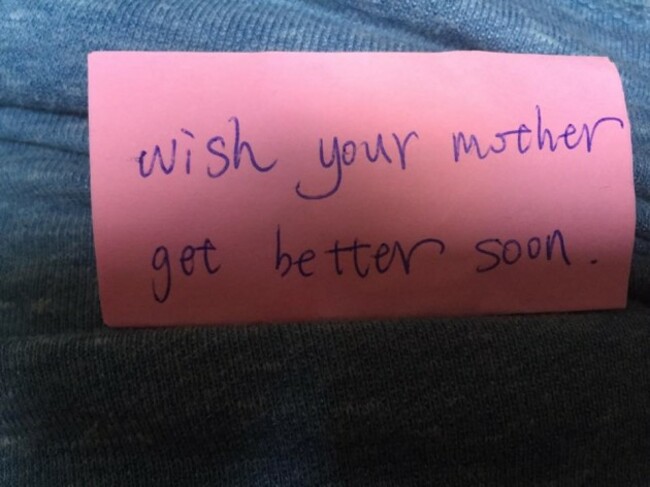 wish your mother
get better soon.